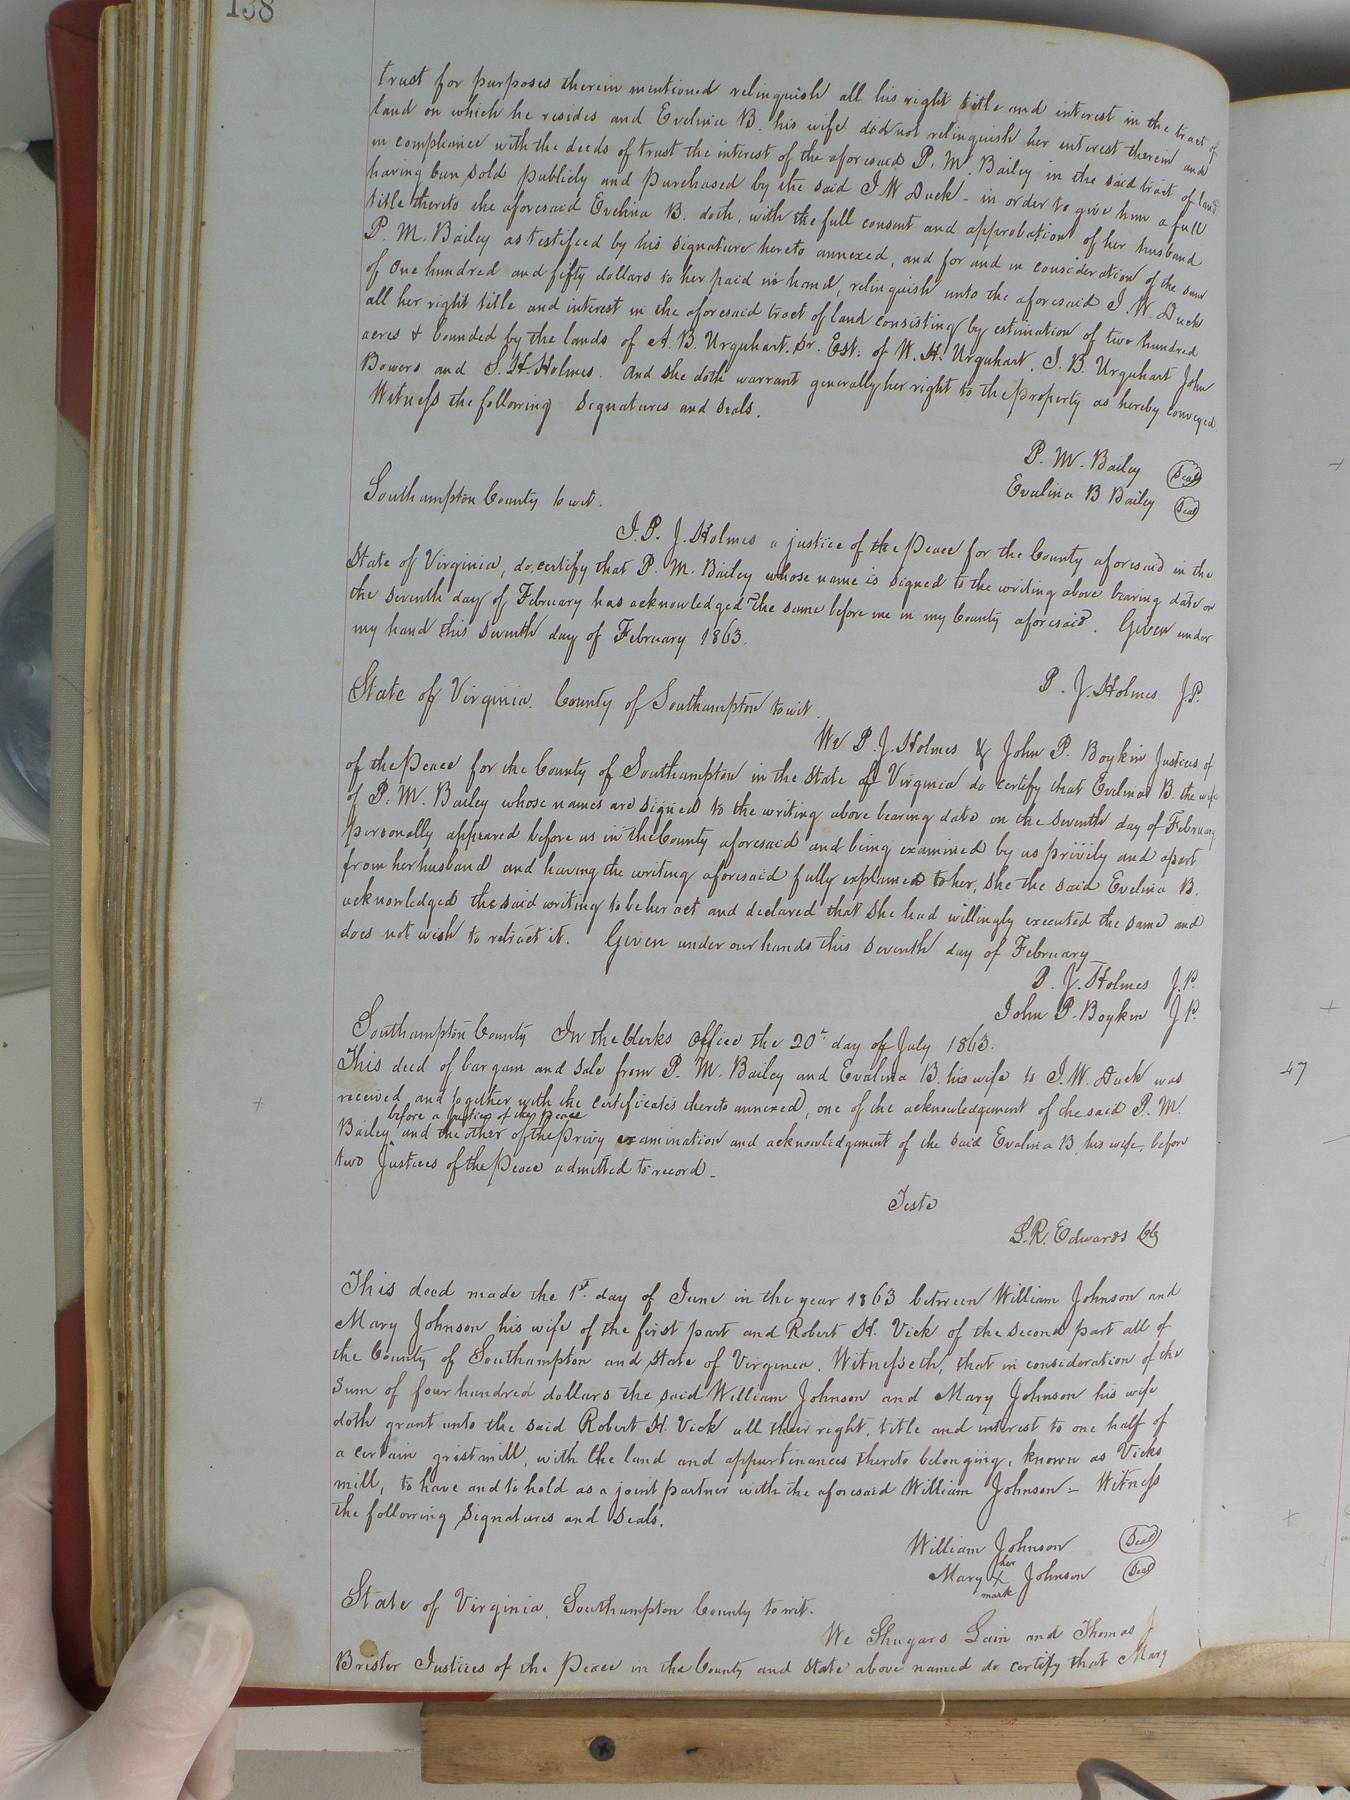 138
trust for purposes therein mentioned relinquish all his right title and interest in the tract of
land on which he resides and Evelina B. his wife did not relinquish her interest therein and
in compliance with the deeds of trust the interest of the aforesaid P. M. Bailey in the said tract of land
having been sold publicly and purchased by the said J. W Duck - in order to give him a full
title thereto the aforesaid Evelina B. doth, with the full consent and approbation of her husband
P. M. Bailey as testified by his signature hereto annexed, and for and in consideration of the sum
of One hundred and fifty dollars to her paid in hand, relinquish unto the aforesaid J. W. Duck
all her right title and interest in the aforesaid tract of land consisting by estimation of two hundred
acres & bounded by the lands of A. B. Urquhart. Sr. Est: of W. H. Urquhart, J. B. Urquhart John
Bowers and S. H. Holmes. And she doth warrant generally her right to the property as hereby conveyed
Witness the following signatures and seals.
P. M. Bailey (Seal)
Evalina B Bailey (Seal)
Southampton County to wit.
I. P. J. Holmes a justice of the Peace for the County aforesaid in the
State of Virginia, do, certify that P. M. Bailey whose name is signed to the writing above bearing date on
the seventh day of February has acknowledged the same before me in my County aforesaid. Given under
my hand this seventh day of February 1863.
P. J. Holmes J.P.
State of Virginia. County of Southampton to wit.
We P. J. Holmes & John P. Boykin Justices of
of the Peace for the County of Southampton in the State of Virginia do certify that Evelina B. the wife
of P. M. Bailey whose names are signed to the writing above bearing date on the seventh day of February
personally appeared before us in the County aforesaid and being examined by us privily and apart
from her husband and having the writing aforesaid fully explained to her, she the said Evelina B.
acknowledged the said writing to be her act and declared that she had willingly executed the same and
does not wish to retract it. Given under our hands this seventh day of February
P. J. Holmes J.P.
John P. Boykin J.P.
Southampton County In the Clerks Office the 20t day of July 1863.
This deed of bargain and sale from P. M. Bailey and Evalina B. his wife to J. W. Duck was
received, and together with the certificates thereto annexed, one of the acknowledgement of the said P. M.
before a justice of the Peace
Bailey and the other of the Privy examination and acknowledgment of the said Evalina B. his wife, before
two Justices of the Peace admitted to record.
Teste
L. R. Edwards Clk
47
This deed made the 1st day of June in the year 1863 between William Johnson and
Mary Johnson his wife of the first part and Robert H. Vick of the second part all of
the County of Southampton and State of Virginia. Witnesseth, that in consideration of the
sum of four hundred dollars the said William Johnson and Mary Johnson his wife
doth grant unto the said Robert H. Vick all their right, title and interest to one half of
a certain grist mill, with the land and appurtinances thereto belonging, known as Vicks
mill, to have and to hold as a joint partner with the aforesaid William Johnson - Witness
the following signatures and seals.
William Johnson (Seal)
her
Mary X Johnson (Seal)
mark
State of Virginia, Southampton County to wit.
We Shugars Lain and Thomas J
Brister Justices of the Peace in the County and State above named do certify that Mary